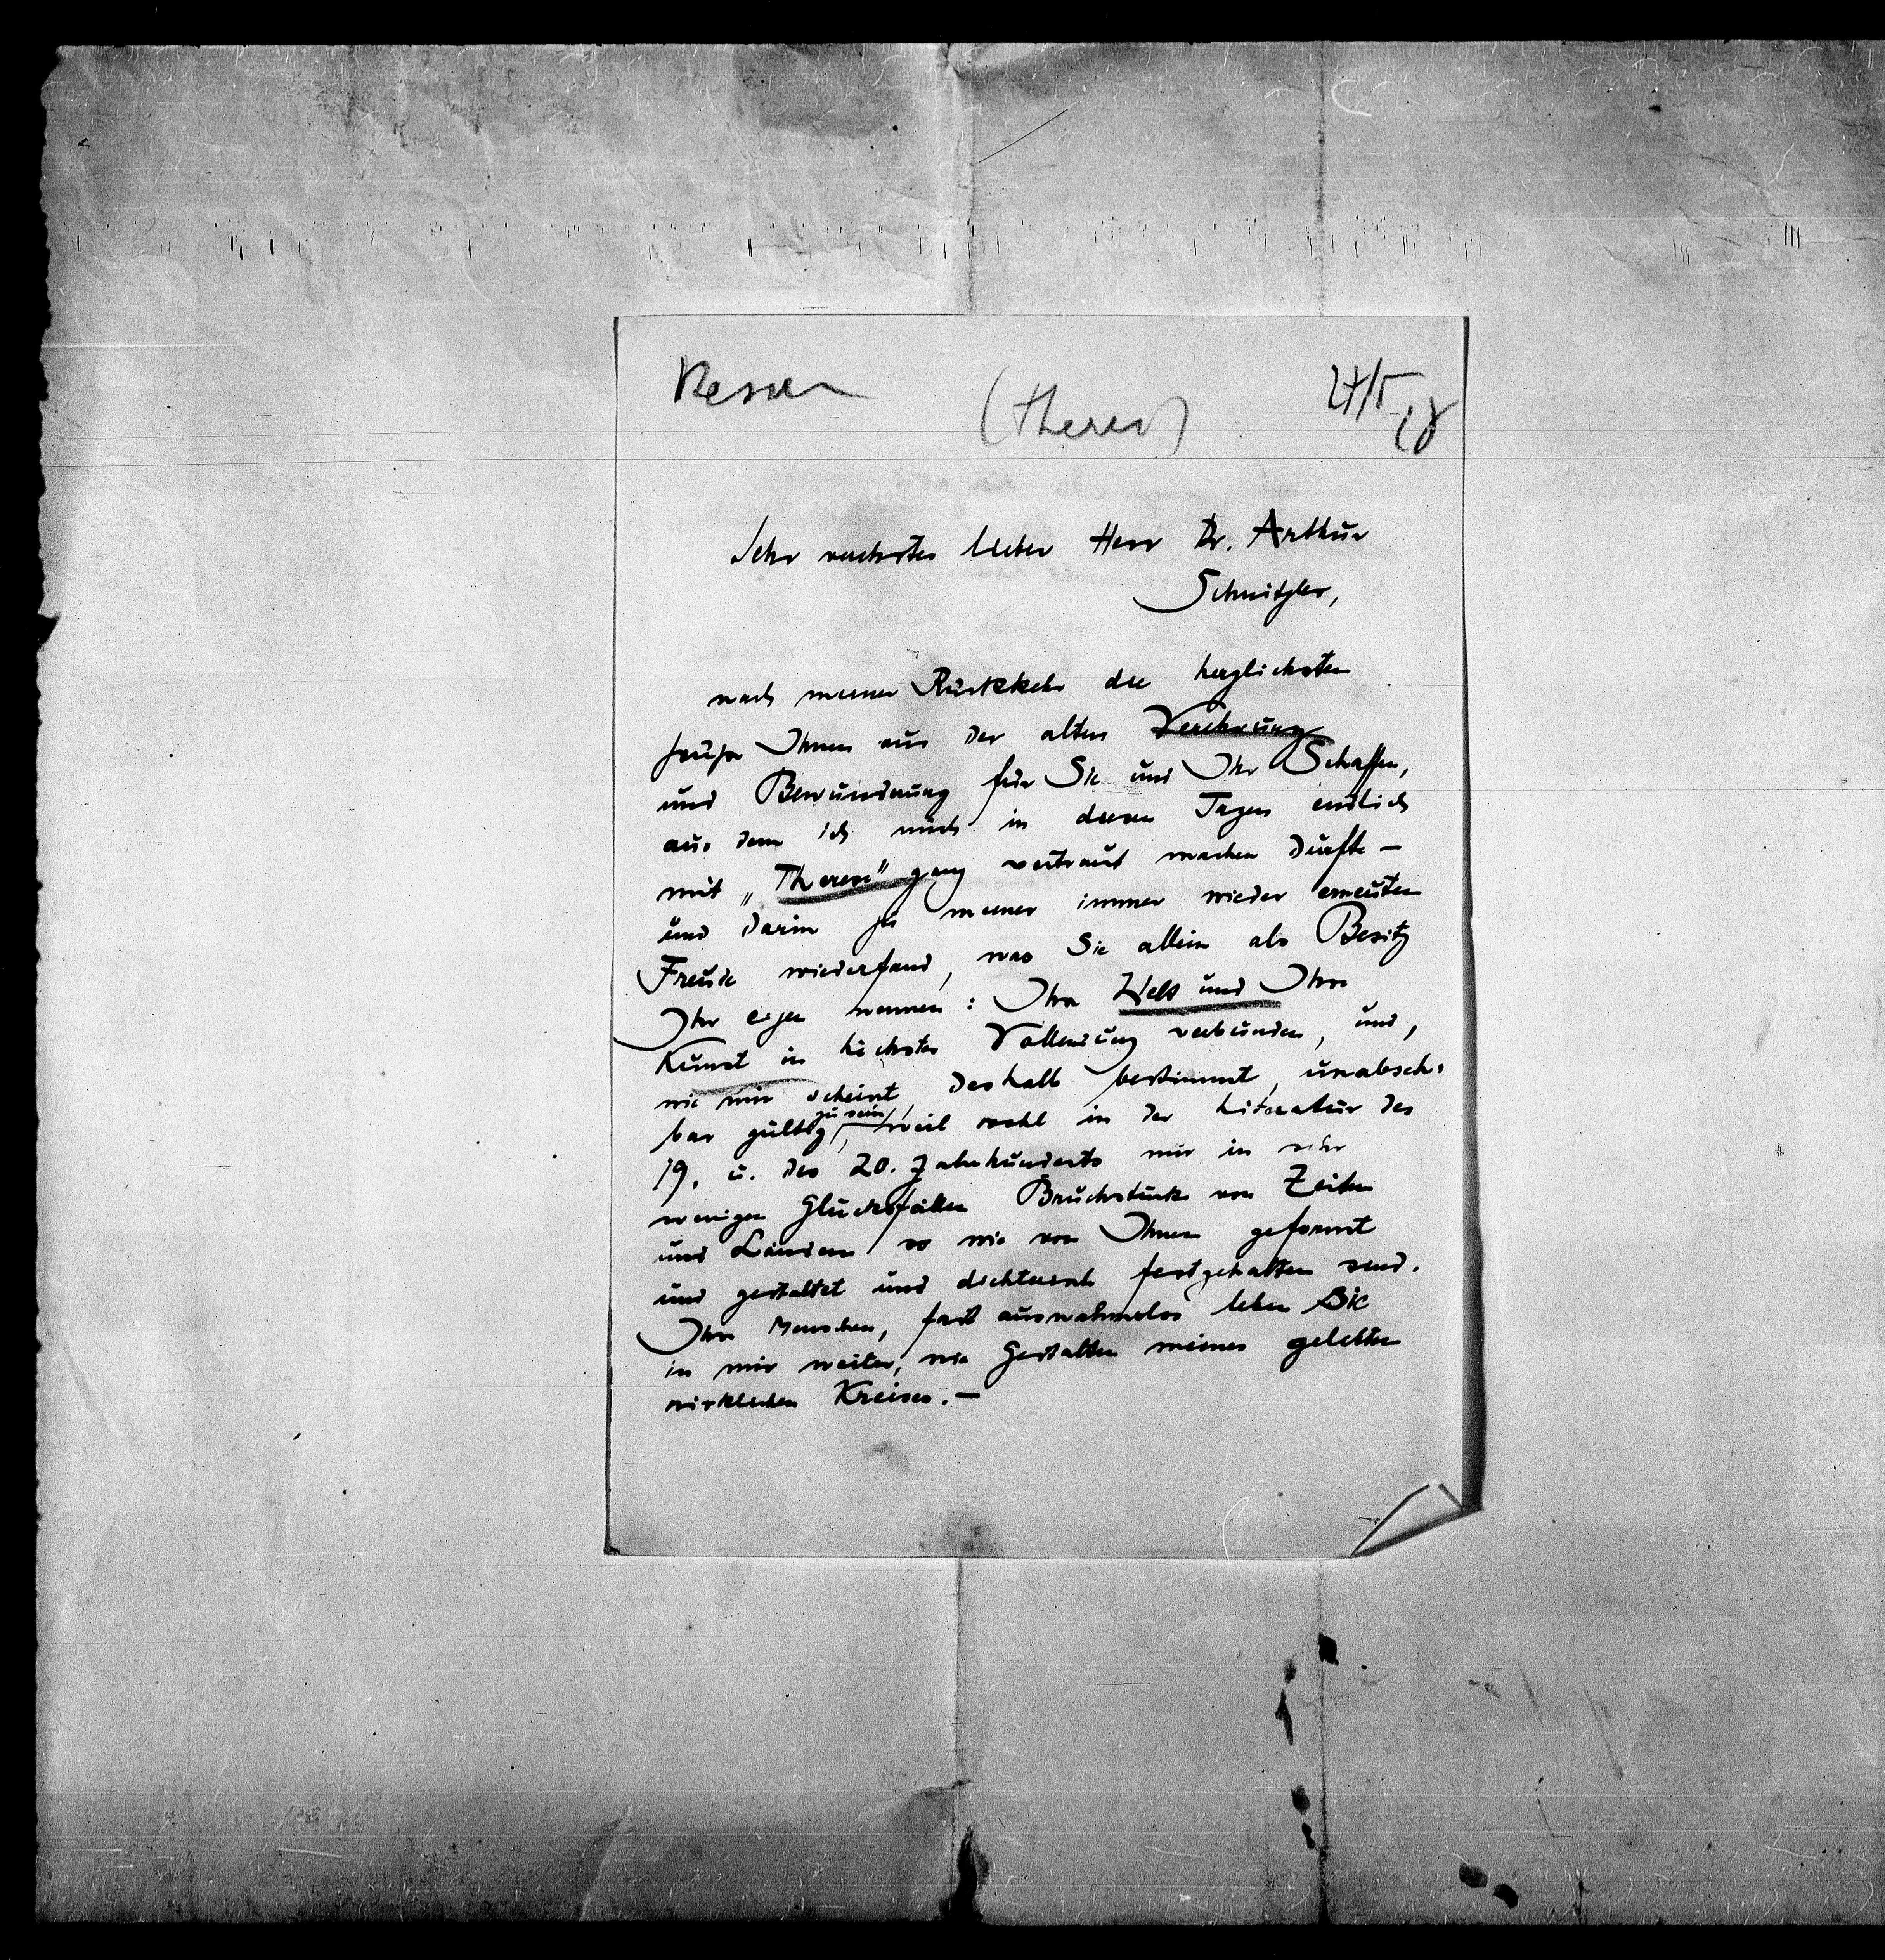 (Theres)
Sehr verehrter lieber Herr Dr. Arthur
Schnitzler,
nach meiner Rückkehr die herzlichsten
Grüße Ihnen aus der alten Verehrung
und Bewunderung für Sie und Ihr Schaffen,
aus dem ich mich in diesen Tagen endlich
mit „Therese" ganz vertraut machen durfte –
und darin zu meiner immer wieder erneuten
Freude wiederfand, was Sie allein als Besitz
Ihr eigen nennen: Ihre Welt und Ihre
Kunst in höchster Vollendung verbunden, und,
wie mir scheint, deshalb bestimmt, unabseh-
bar gültig zu sein, weil wohl in der Literatur des
19. u. des 20. Jahrhunderts nur in sehr
wenigen Glücksfällen Bruchstücke von Zeiten
und Ländern so wie von Ihnen geformt
und gestaltet und dichterisch festgehalten sind.
Ihre Menschen, fast ausnahmslos leben Sie
in mir weiter, wie Gestalten meines gelebten
wirklichen Kreises. –